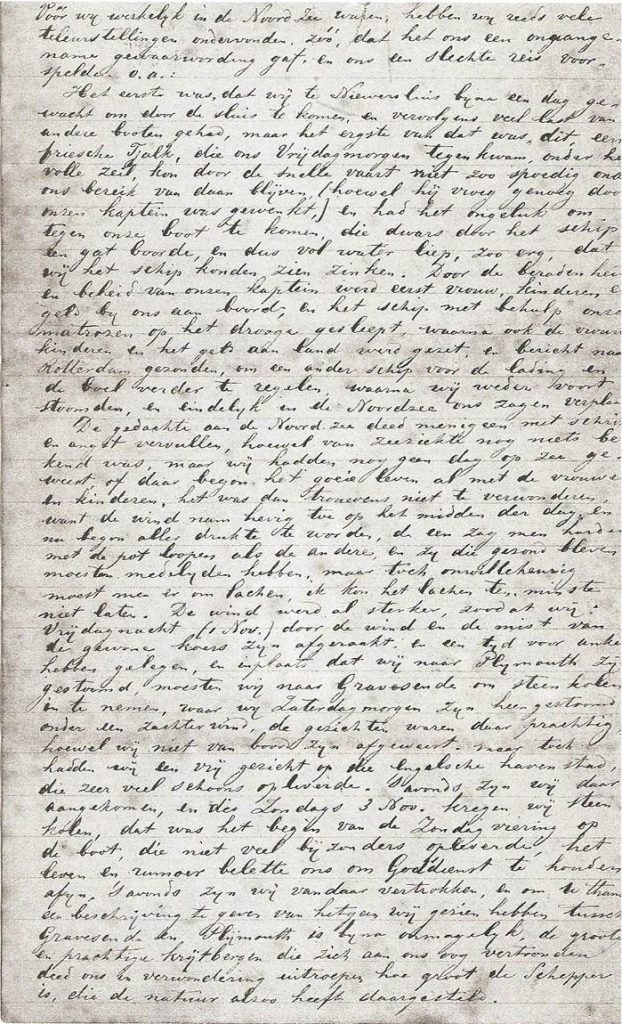 Vóór wy werkelyk in de Noord Zee waren, hebben wy reeds vele
teleurstellingen ondervonden, zóó, dat het ons een onaange-
name gewaarwording gaf, en ons een slechte reis voor-
spelde. o.a.:
Het eerste was, dat wij te Niewersluis byna een dag ge-
wacht om door de sluis te komen, en vervolgens veel last van
andere booten gehad, maar het ergste van dat was, dit, een
friesche Tjalk, die ons Vrijdagmorgen tegenkwam, onder he
volle zeil, kon door de snelle vaart niet zoo spoedig ond
ons bereik van daan blijven, (hoewel hij vroeg genoeg doo
onzen kaptein was gewenkt,) en had het ongeluk om
tegen onze boot te komen, die dwars door het schip
een gat boorde, en dus vol water liep, zoo erg, dat
wij het schip konden zien zinken. Door de beraden hei
en beleid van onzen kaptein werd eerst vrouw, kinderen e
geld by ons aan boord, en het schip met behulp onze
matrozen op het drooge gesleept, waarna ook de vrouw
kinderen en het geld aan land werd gezet, en bericht naa
Rotterdam gezonden, om een ander schip voor de lading en
de boel verder te regelen, waarna wij weder voort
stoomden, en eindelyk in de Noordzee ons zagen verplaa
De gedachte aan de Noord zee deed menigeen met schri
en angst vervullen, hoewel van zeeziekte nog niets be
kend was, maar wij hadden nog geen dag op zee ge-
weest, of daar begon het goeie leven al met de vrouwe
en kinderen, het was dan trouwens niet te verwonderen,
want de wind nam hevig toe op het midden der dag, en
nu begon alles drukte te worden, de een zag men harder
met de pot loopen als de andere, en zy die gezond bleven
moesten medelyden hebben, maar toch onwillekeurig
moest men er om lachen, ik kon het lachen ten minste
niet laten. De wind werd al sterker, zoodat wij
Vrijdagnacht (1 Nov.) door de wind en de mist van
de gewone koers zyn afgeraakt, en een tyd voor anke
hebben gelegen, en inplaats dat wij naar Plymouth zy
gestoomd, moesten wij naar Gravesende om steenkolen
in te nemen, waar wy Zaterdagmorgen zyn heengestoomd
onder een zachter wind, de gezichten waren daar prachtig
hoewel wij niet van boord zyn afgeweest. maar toch
hadden wij een vrij gezicht op die engelsche havenstad,
die zeer veel schoons opleverde. 's avonds zyn wij daar
aangekomen, en des Zondags 3 Nov. kregen wij steen
kolen, dat was het begin van de Zondag viering op
de boot, die niet veel bijzonders opleverde, het
leven en rumoer belette ons om Goddienst te houden
afyn, 's avonds zyn wij vandaar vertrokken, en om U than
een beschrijving te geven van hetgeen wij gezien hebben tussch
Gravesende en, Plijmouth is byna onmogelyk, de groote
en prachtige krijtbergen die zich aan ons oog vertoonden
deed ons in verwondering uitroepen hoe groot de Schepper
is, die de natuur alzoo heeft daargesteld.